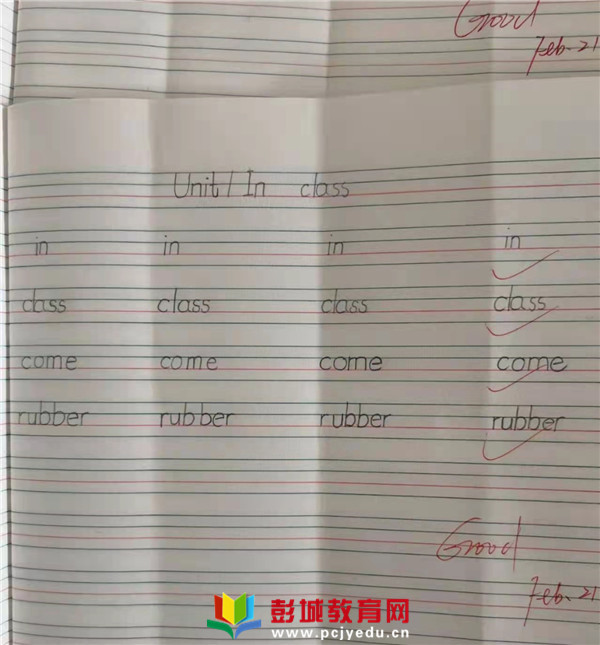 Good
Feb. 21
Unit 1 In class
in in in in
class class class class
come come come come
rubber rubber rubber rubber
Good
Feb. 21
彭城教育网
www.pcjyedu.cn